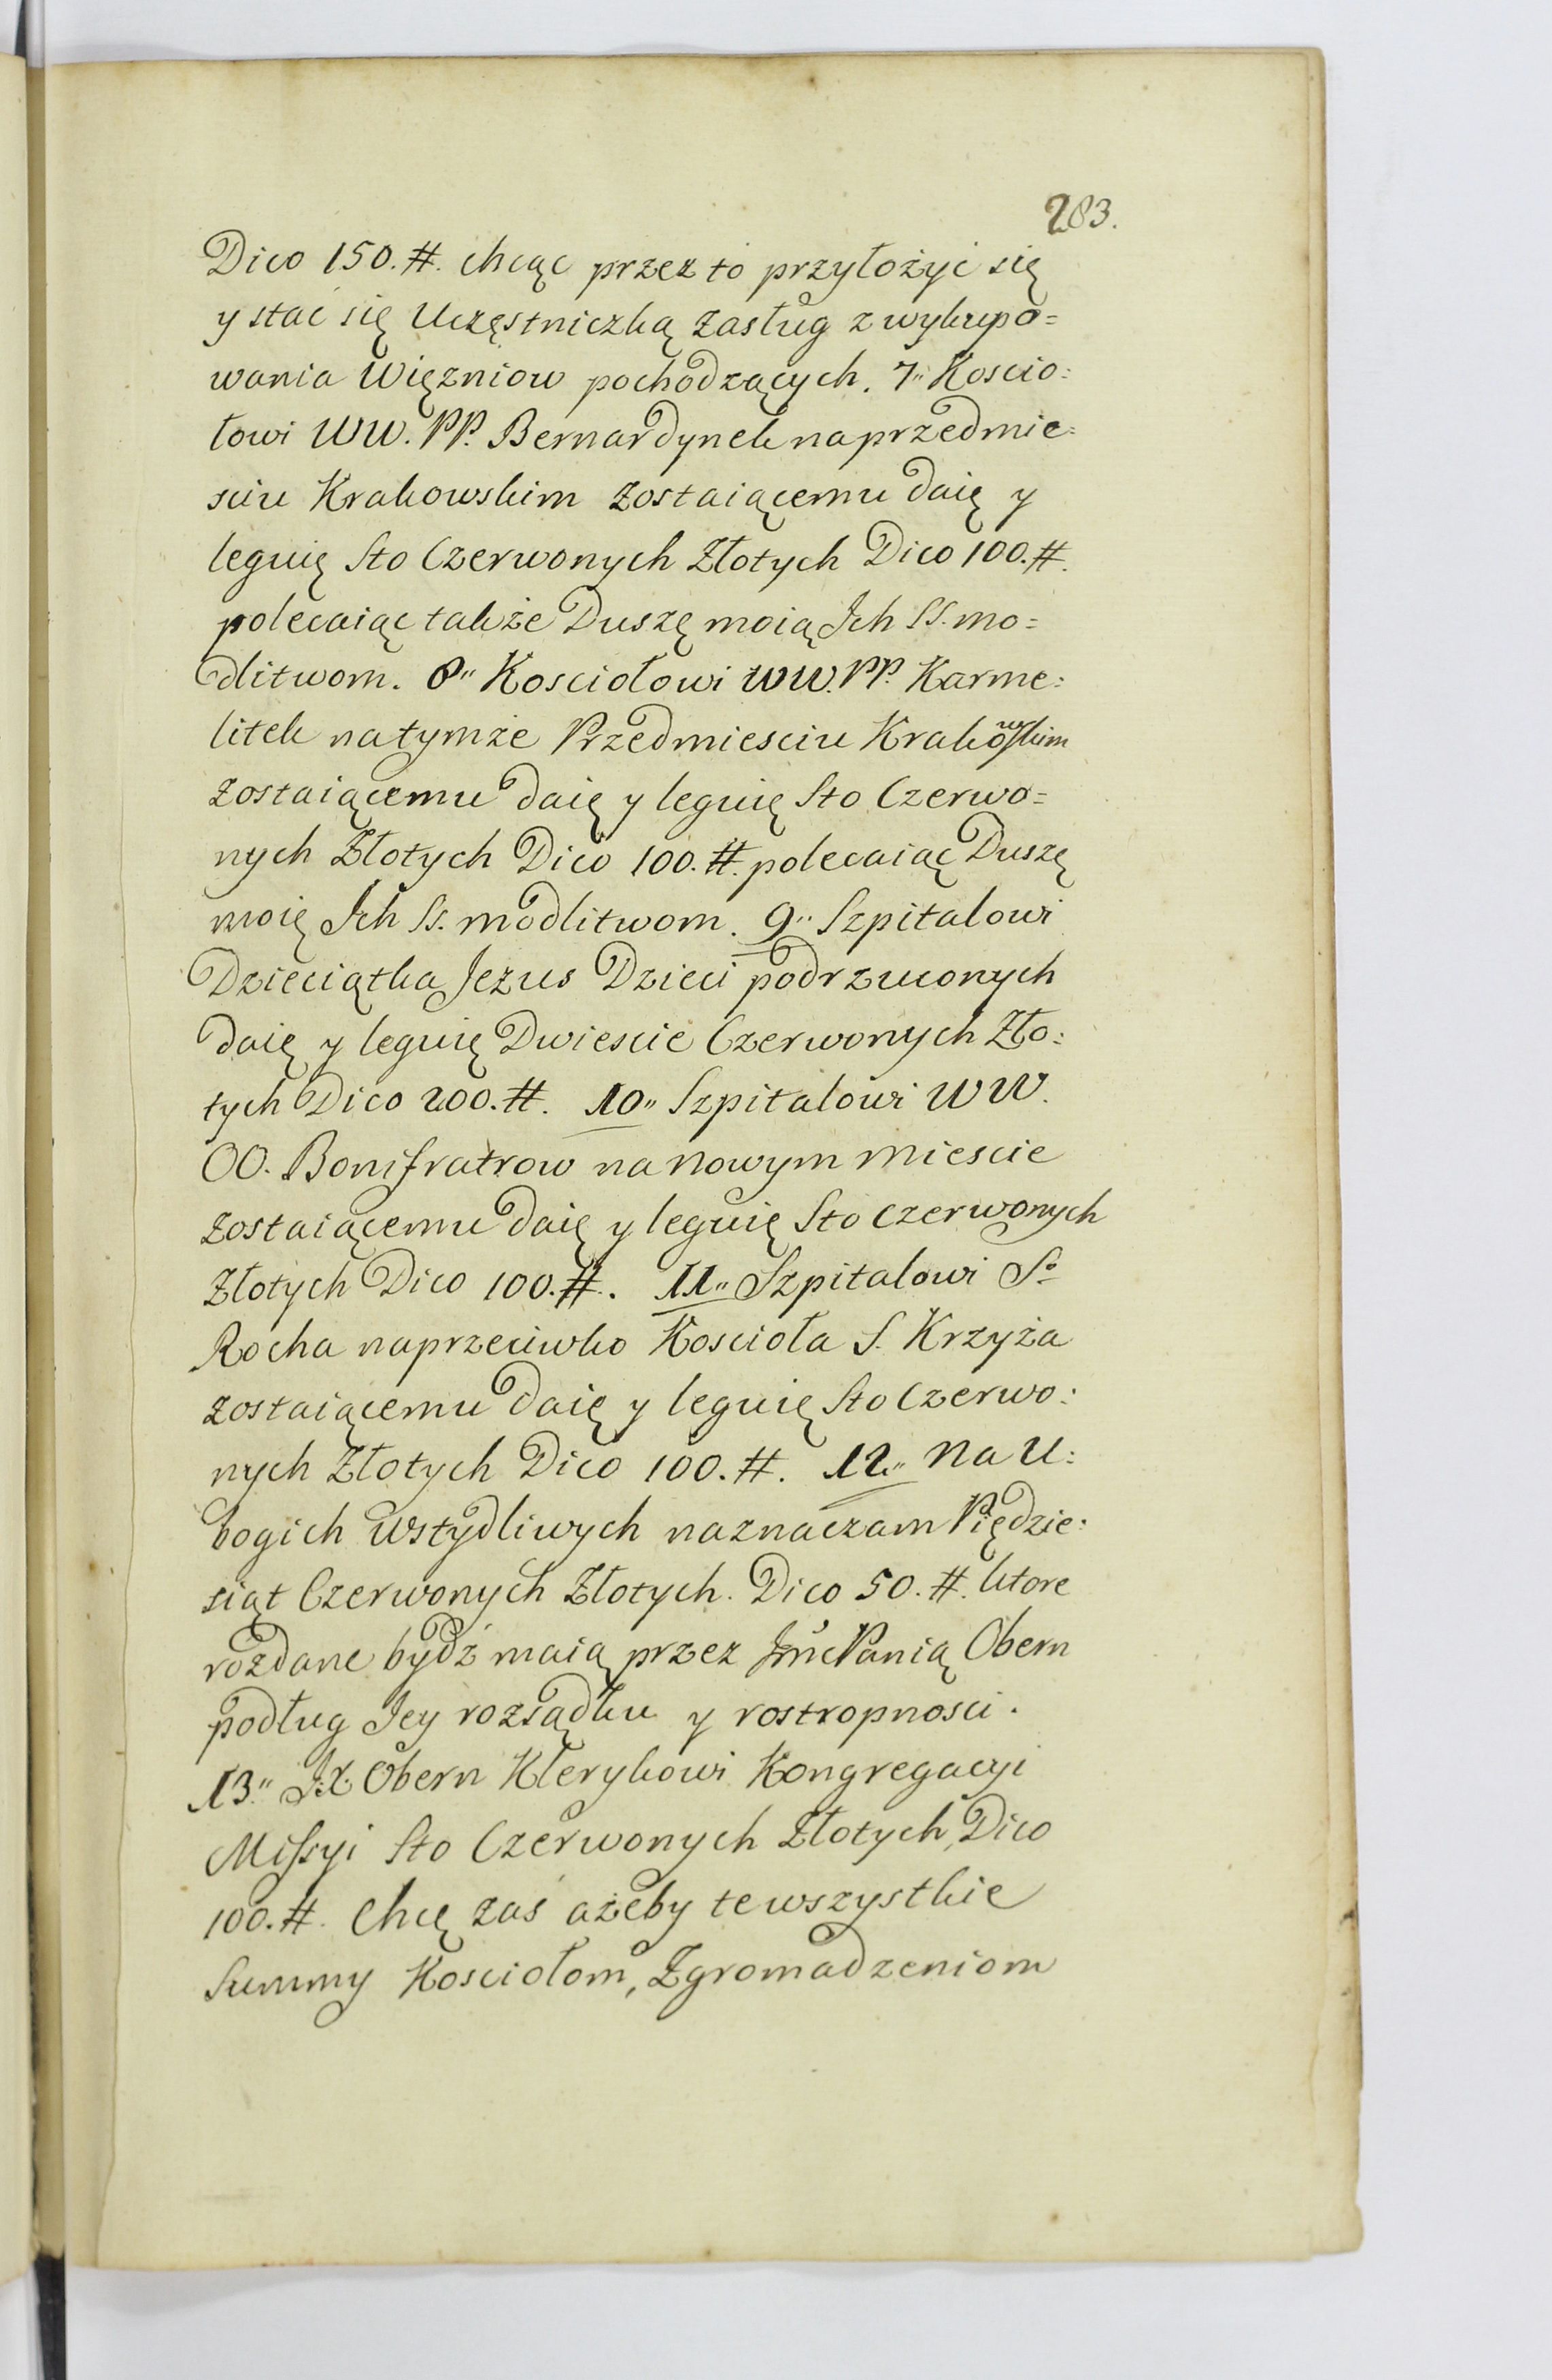 283.
Dico 150. #. chcąc przez to przyłożyć się
y stać się Uczęstniczką zasług z wykupo=
wania Więzniow pochodzących. 7" Koscio:
łowi WW. PP. Bernardynek na przedmie:
sciu Krakowskim zostaiącemu daię y
leguię Sto Czerwonych Złotych Dico 100. #.
polecaiąc także Duszę moią Ich SS. mo=
dlitwom. 8" Kosciołowi WW. PP. Karme:
litek na tymże Przedmiesciu Krakowskim
zostaiącemu daię y leguię Sto Czerwo=
nych Złotych Dico 100. #. polecaiąc Duszę
moię Ich Ss. modlitwom. 9" Szpitalowi
Dzieciątka Jezus Dzieci podrzuconych
daię y leguię Dwiescie Czerwonych Zło:
tych Dico 200. #. 10" Szpitalowi WW.
OO. Bonifratrow na nowym miescie
zostaiącemu daię y leguię Sto czerwonych
Złotych Dico 100. #. 11" Szpitalowi So
Rocha naprzeciwko Koscioła S. Krzyża
zostaiącemu daię y leguię Sto Czerwo:
nych Złotych Dico 100. #. 12" Na U:
bogich Wstydliwych naznaczam Pięćdzie:
siąt Czerwonych Złotych. Dico 50. #. ktore
rozdane bydź maią przez Jmć Panią Obern
podług Jey rozsądku y rostropnosci.
13" J.X. Obern Klerykowi Kongregacyi
Missyi Sto Czerwonych Złotych, Dico
100. #. Chcę zaś ażeby te wszystkie
Summy Kosciołom, Zgromadzeniom